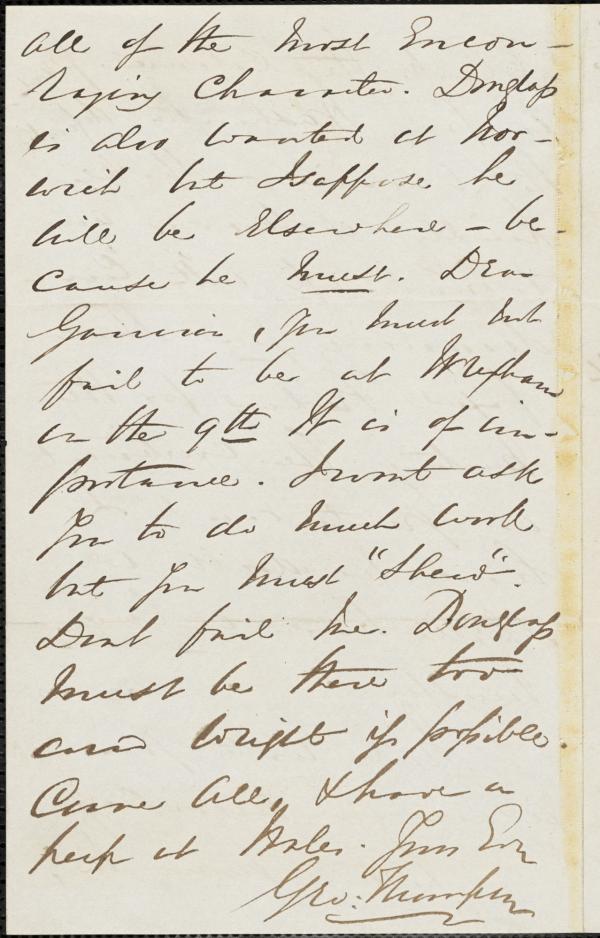 all of the most encou-
raging character. Douglass
is also wanted at Nor-
wich but I suppose he
will be elsewhere – be-
cause he must. Dear
Garrison, you must not
fail to be at Wrexham
on the 9th It is of im-
portance. I wont ask
you to do much work
but you must "shew".
Dont fail me. Douglass
must be there too
and Wright if possible.
Come all, & have a
peep at Wales. Yours Ever
Geo: Thompson